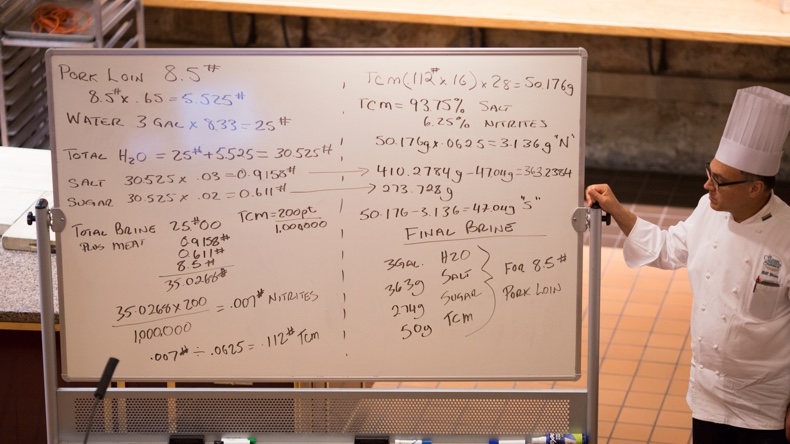 PORK LOIN 8.5#
8.5# x .65 = 5.525#
WATER 3 GAL x 8.33 = 25#
TOTAL H2O = 25# + 5.525 = 30.525#
SALT 30.525 x .03 = 0.9158#
SUGAR 30.525 x .02 = 0.611#
TOTAL BRINE 25#00
PLUS MEAT 0.9158#
0.611#
8.5#
35.0268#
TCM = 200pt
1,000,000
35.0268 x 200 = .007# NITRITES
1,000,000
.007# ÷ .0625 = .112# TCM
TCM (.112# x 16) x 28 = 50.176g
TCM = 93.75% SALT
6.25% NITRITES
50.176g x .0625 = 3.136g "N"
410.2784g - 47.04g = 363.2384
273.728g
50.176 - 3.136 = 47.04g "S"
FINAL BRINE
3GAL. H2O
363g SALT
274g SUGAR
50g TCM
FOR 8.5#
PORK LOIN